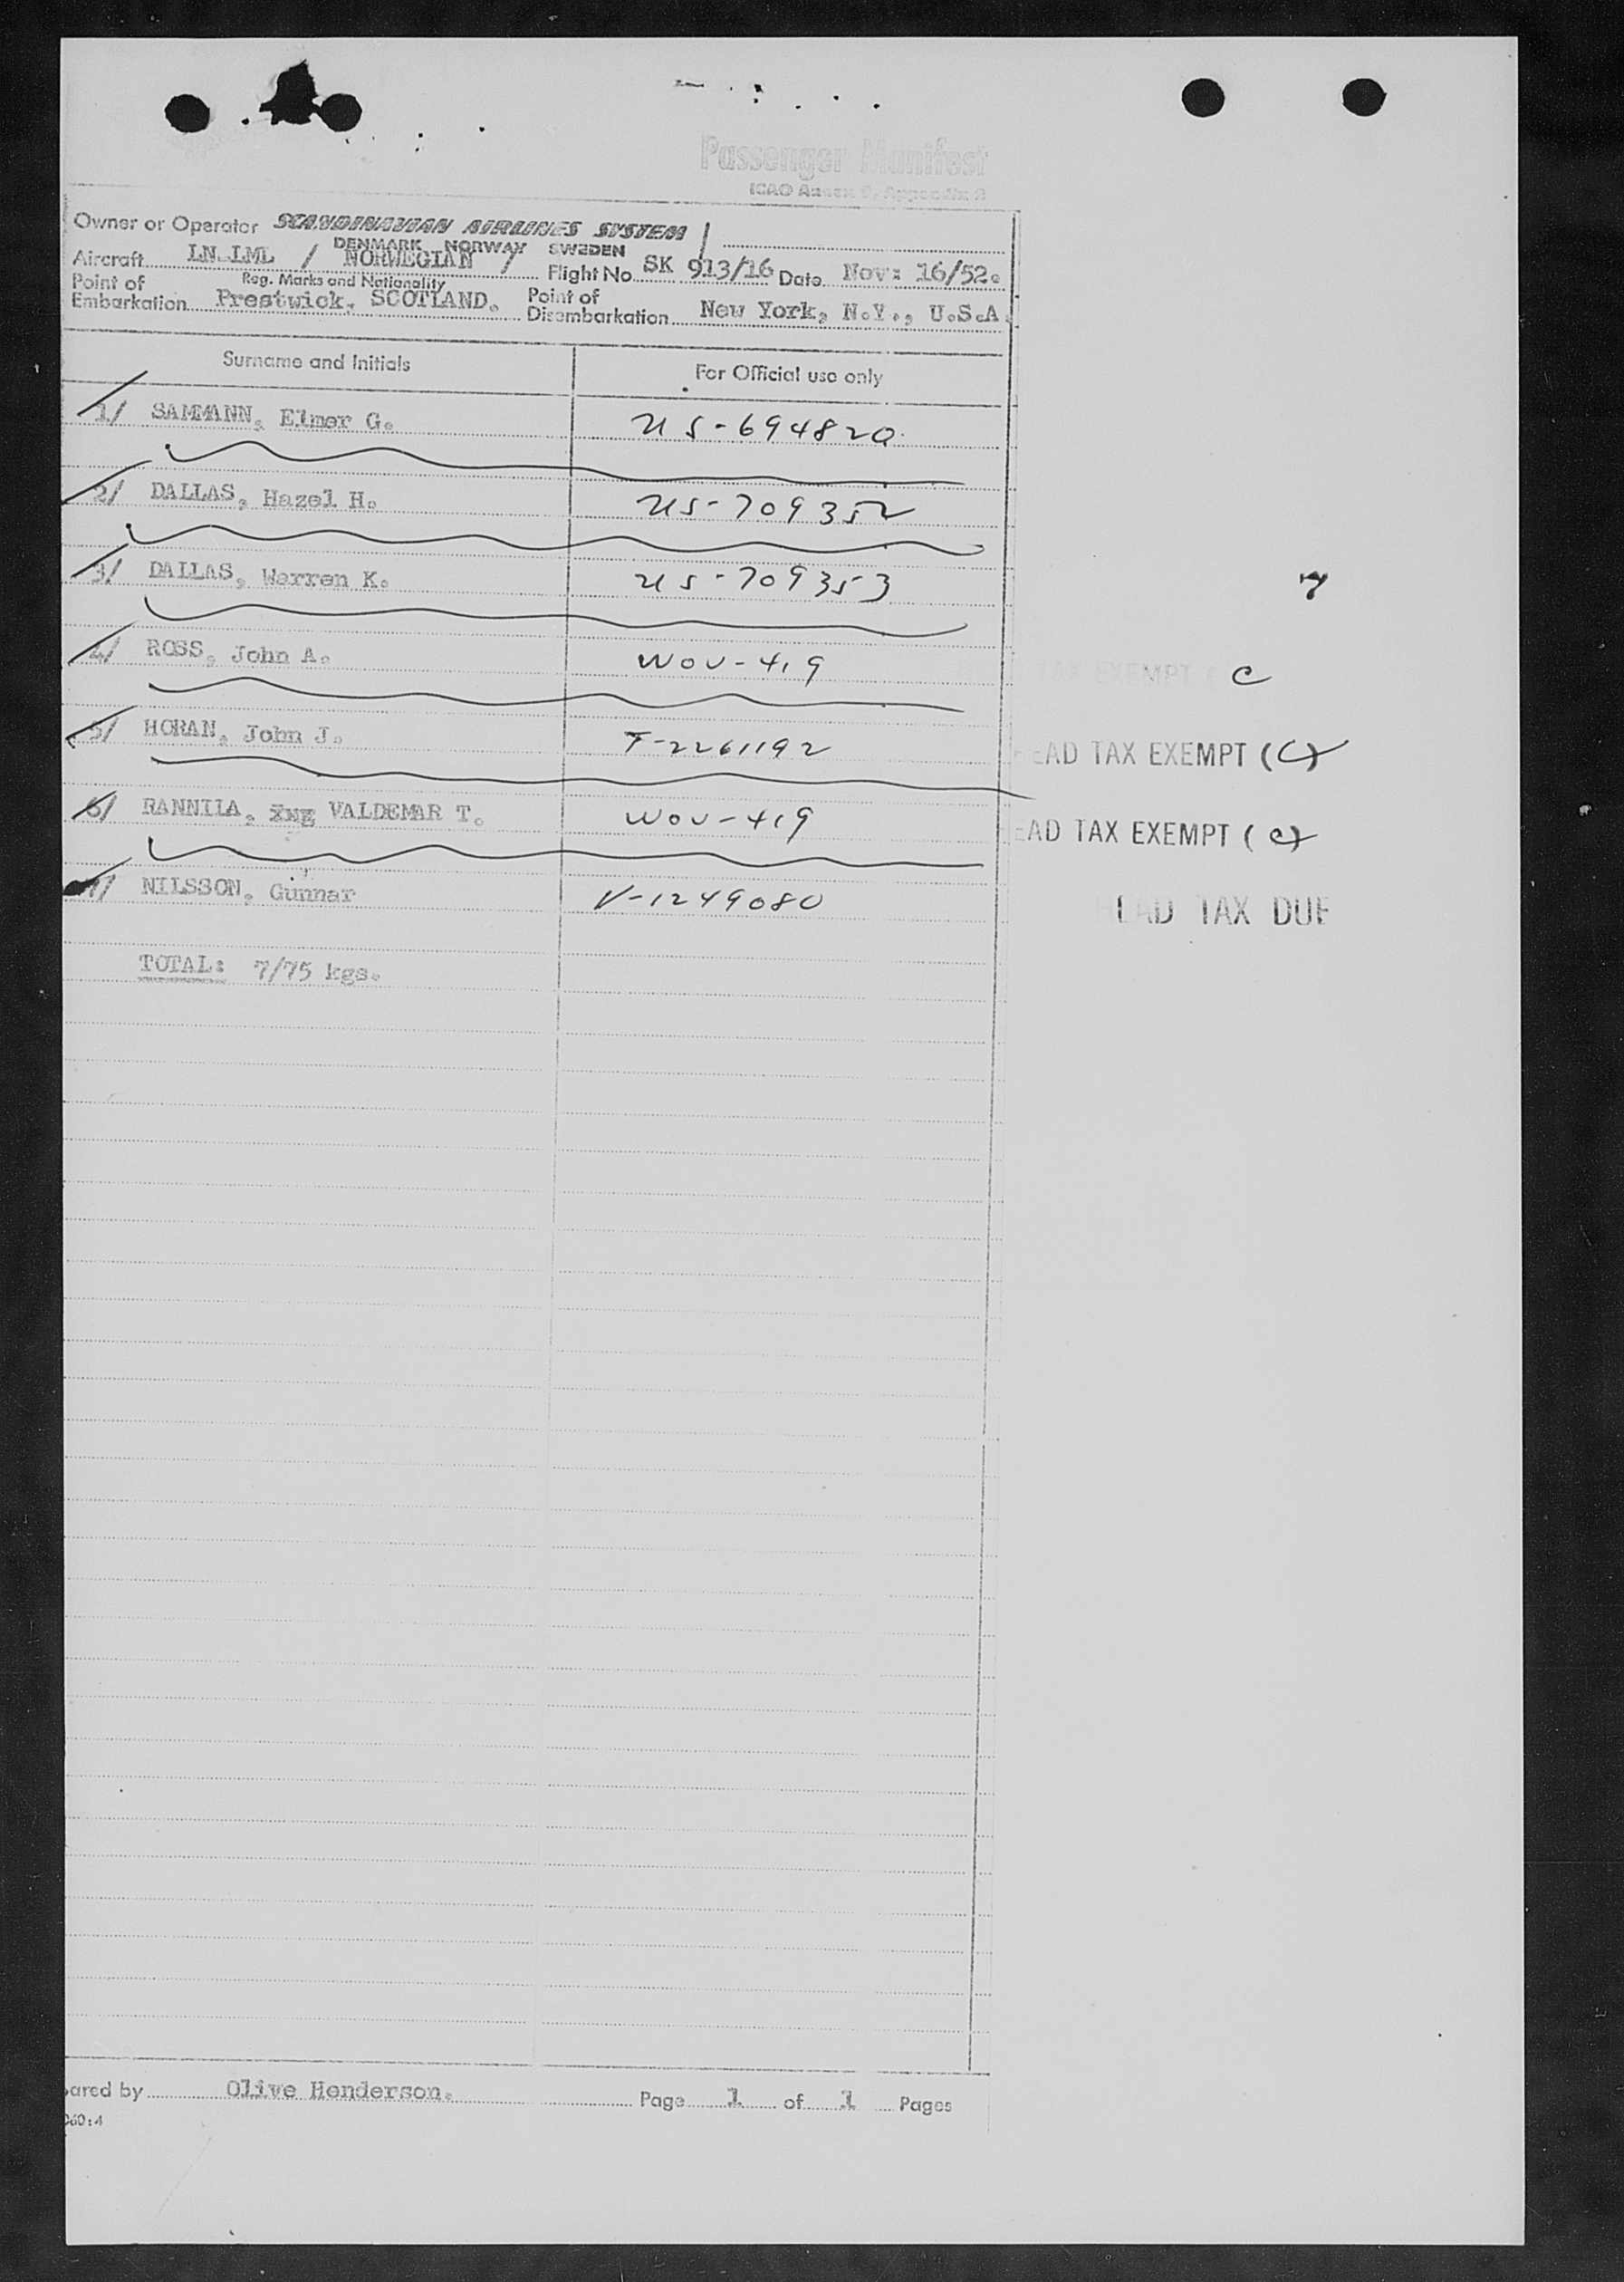 Passenger Manifest
ICAO Annex 9, Appendix 2
Owner or Operator SCANDINAVIAN AIRLINES SYSTEM
DENMARK NORWAY SWEDEN
Aircraft LN-LML / NORWEGIAN / Flight No. SK 913/16 Date Nov: 16/52.
Reg. Marks and Nationality
Point of Embarkation Prestwick, SCOTLAND. Point of Disembarkation New York, N.Y., U.S.A.
Surname and Initials For Official use only
1/ SAMMANN, Elmer G. US-694820
2/ DALLAS, Hazel H. US-709352
3/ DALLAS, Warren K. US-709353
7
4/ ROSS, John A. WOV-419 TAX EXEMPT ( C
5/ HORAN, John J. T-2261192 HEAD TAX EXEMPT (C)
6/ RANNILA, VALDEMAR T. WOV-419 HEAD TAX EXEMPT (C)
7/ NILSSON, Gunnar V-1249080 HEAD TAX DUE
TOTAL: 7/75 kgs.
ared by Olive Henderson. Page 1 of 1 Pages
060:4